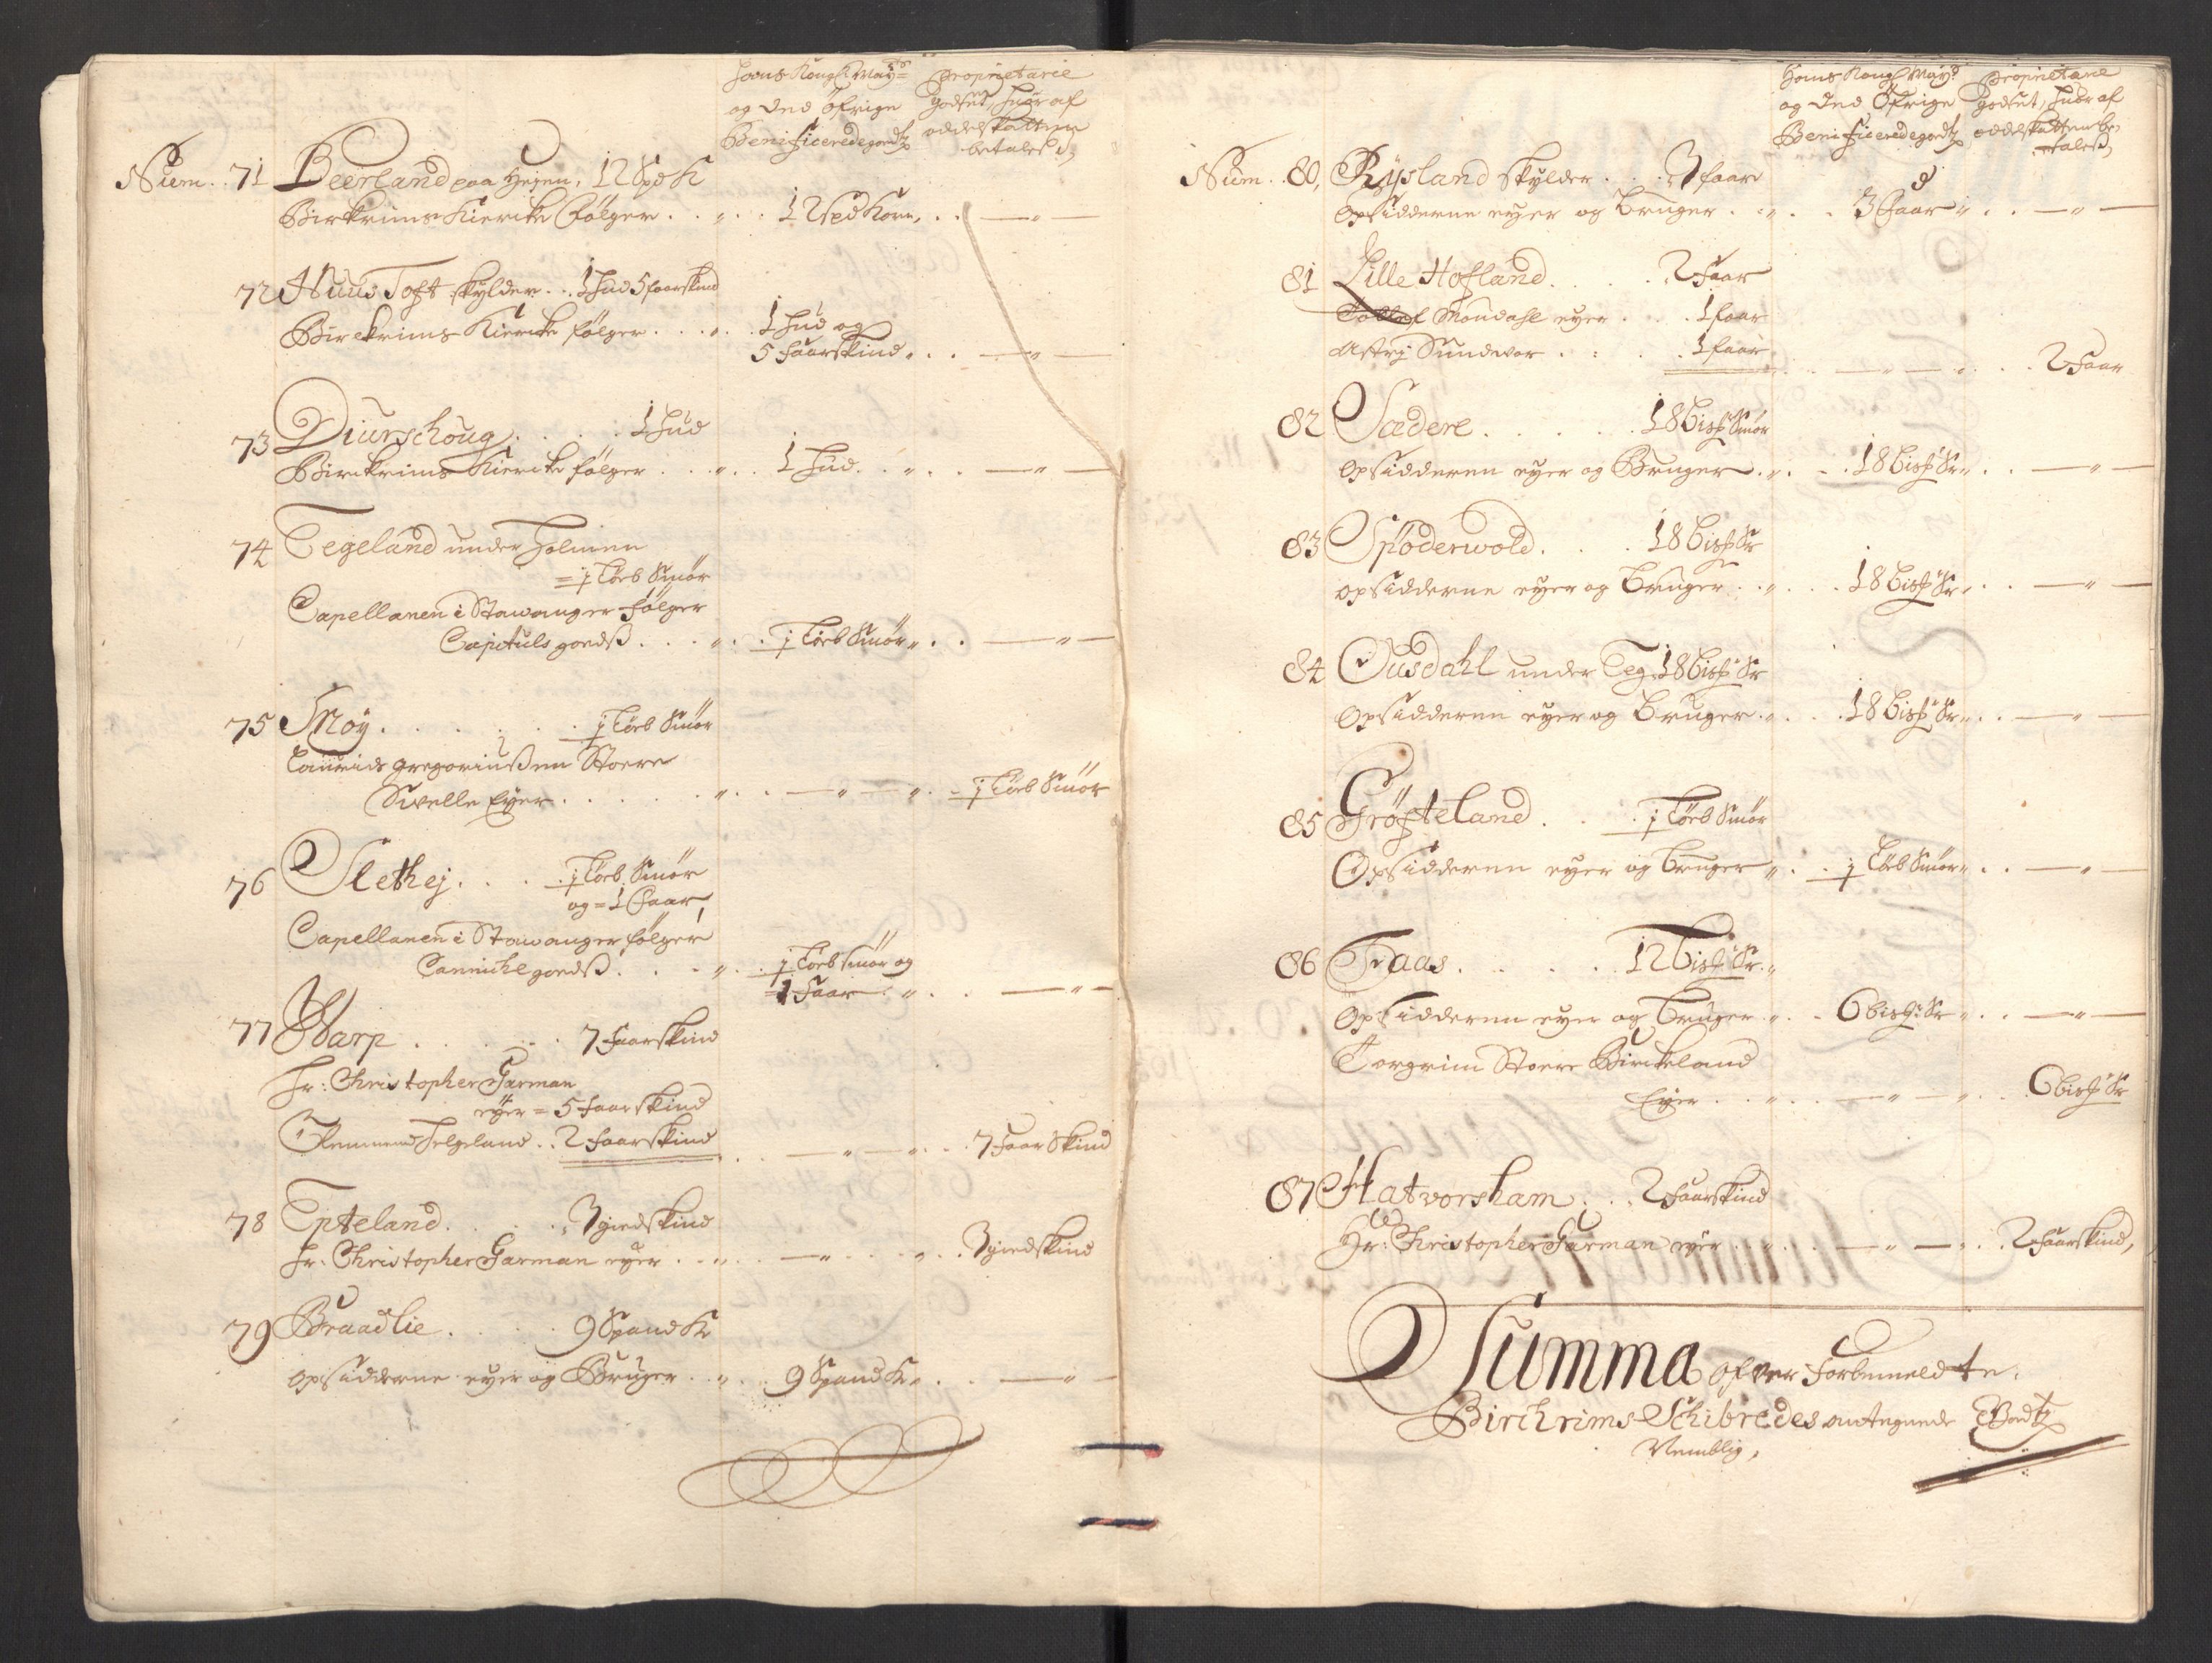 Hans Kongl: May:ts
og Ded Öfrige
Benificeredegodtz
Proprietarie
godset, huoraf
oddelskatten
betales
Num. 71 Beerland paa Hejen, 12 Spd K
Birkrims Kiercke følger . . „ . . 12 Spd Korn, . . — „ —
72 Nuus Toft skylder . . 1 Hud 5 faarskind
Birckrims Kiercke følger . . . „ . . 1 Hud og
5 faarskind „ . . — „ —
73 Diurschoug . . . . 1 Hud
Birckrims Kiercke følger . . . „ . . 1 Hud . . „ . . — „ —
74 Tegeland under Holmen
= ½ Løeb Smør
Capellanen i Stawanger følger
Capituls godß . . . „ . . ½ Løeb Smør „ . . — „ —
75 Moy . . . . . . ½ Løeb Smør
Laurids Gregoriußen Stoere
Svelle Eyer . . . . . „ . . — „ — „ . . ½ Løeb Smør
76 Slethej . . . . ½ Løeb Smør
og = 1 Faar,
Capellanen i Stawanger følger
Cannichegodß . . . „ . . ½ Løeb Smør og
= 1 Faar „ . . — „ —
77 Warp . . . . . . 7 Faarskind
Hr: Christopher Garman
eyer = 5 Faarskind
Clemmend Helgeland . . 2 Faarskind . . — „ — „ . . 7 Faar Skind
78 Epteland . . . . 3 giedskind
Hr: Christopher Garman eyer . . „ . . — „ . . . „ . . 3 giedskind
79 Braadlie . . . . 9 Spand K
opsidderne eyer og Bruger . . „ . . 9 Spand K „ . . — „ —
Hans Kongl May:ts
og Ded Öfrige
Benificeredegodtz
Proprietarie
godset, huoraf
oddelskatten be,
tales,
Num. . 80, Rysland skylder . . . 3 faar
opsidderne eyer og bruger . . „ . . 3 Faar „ . . — „ —
81 Lille Hofland . . . . 2 Faar
Tollef Mondahl eyer . . . 1 faar
Astrj Sundvor . . : . . 1 faar . . — „ — „ . . 2 Faar
82 Sædere . . . . . 18 Bisp: Smør
opsidderen eyer og Bruger . „ . . 18 Bisp: Sr „ . . — „ —
83 Spøderwold . . . 18 Bisp: Sr
opsidderne eyer og bruger . . „ . . 18 Bisp: Sr „ . . — „ —
84 Ousdahl under Teg: 18 Bisp: Sr
opsidderen eyer og bruger . „ . . 18 Bisp: Sr „ . . — „ —
85 Grøfteland . . . ½ Løeb Smør
Opsidderen eyer og bruger „ . . ½ Løeb Smør „ . . — „ —
86 Traas . . . . 12 Bisp: Sr „
opsidderen eyer og bruger . „ . . 6 bisp: Sr „ . . — „ —
Torgrim Stoere Birckeland
Eyer . . „ . . — „ — „ . . 6 bisp: Sr
87 Hatvorsham . . . 2 Faarskind
Hr: Christopher Garman eyer . . „ . . — „ — „ . . 2 Faarskind,
Summa ofver forbemeldte
Birchrims Schibredes antegnede Godtz
Nemblig,